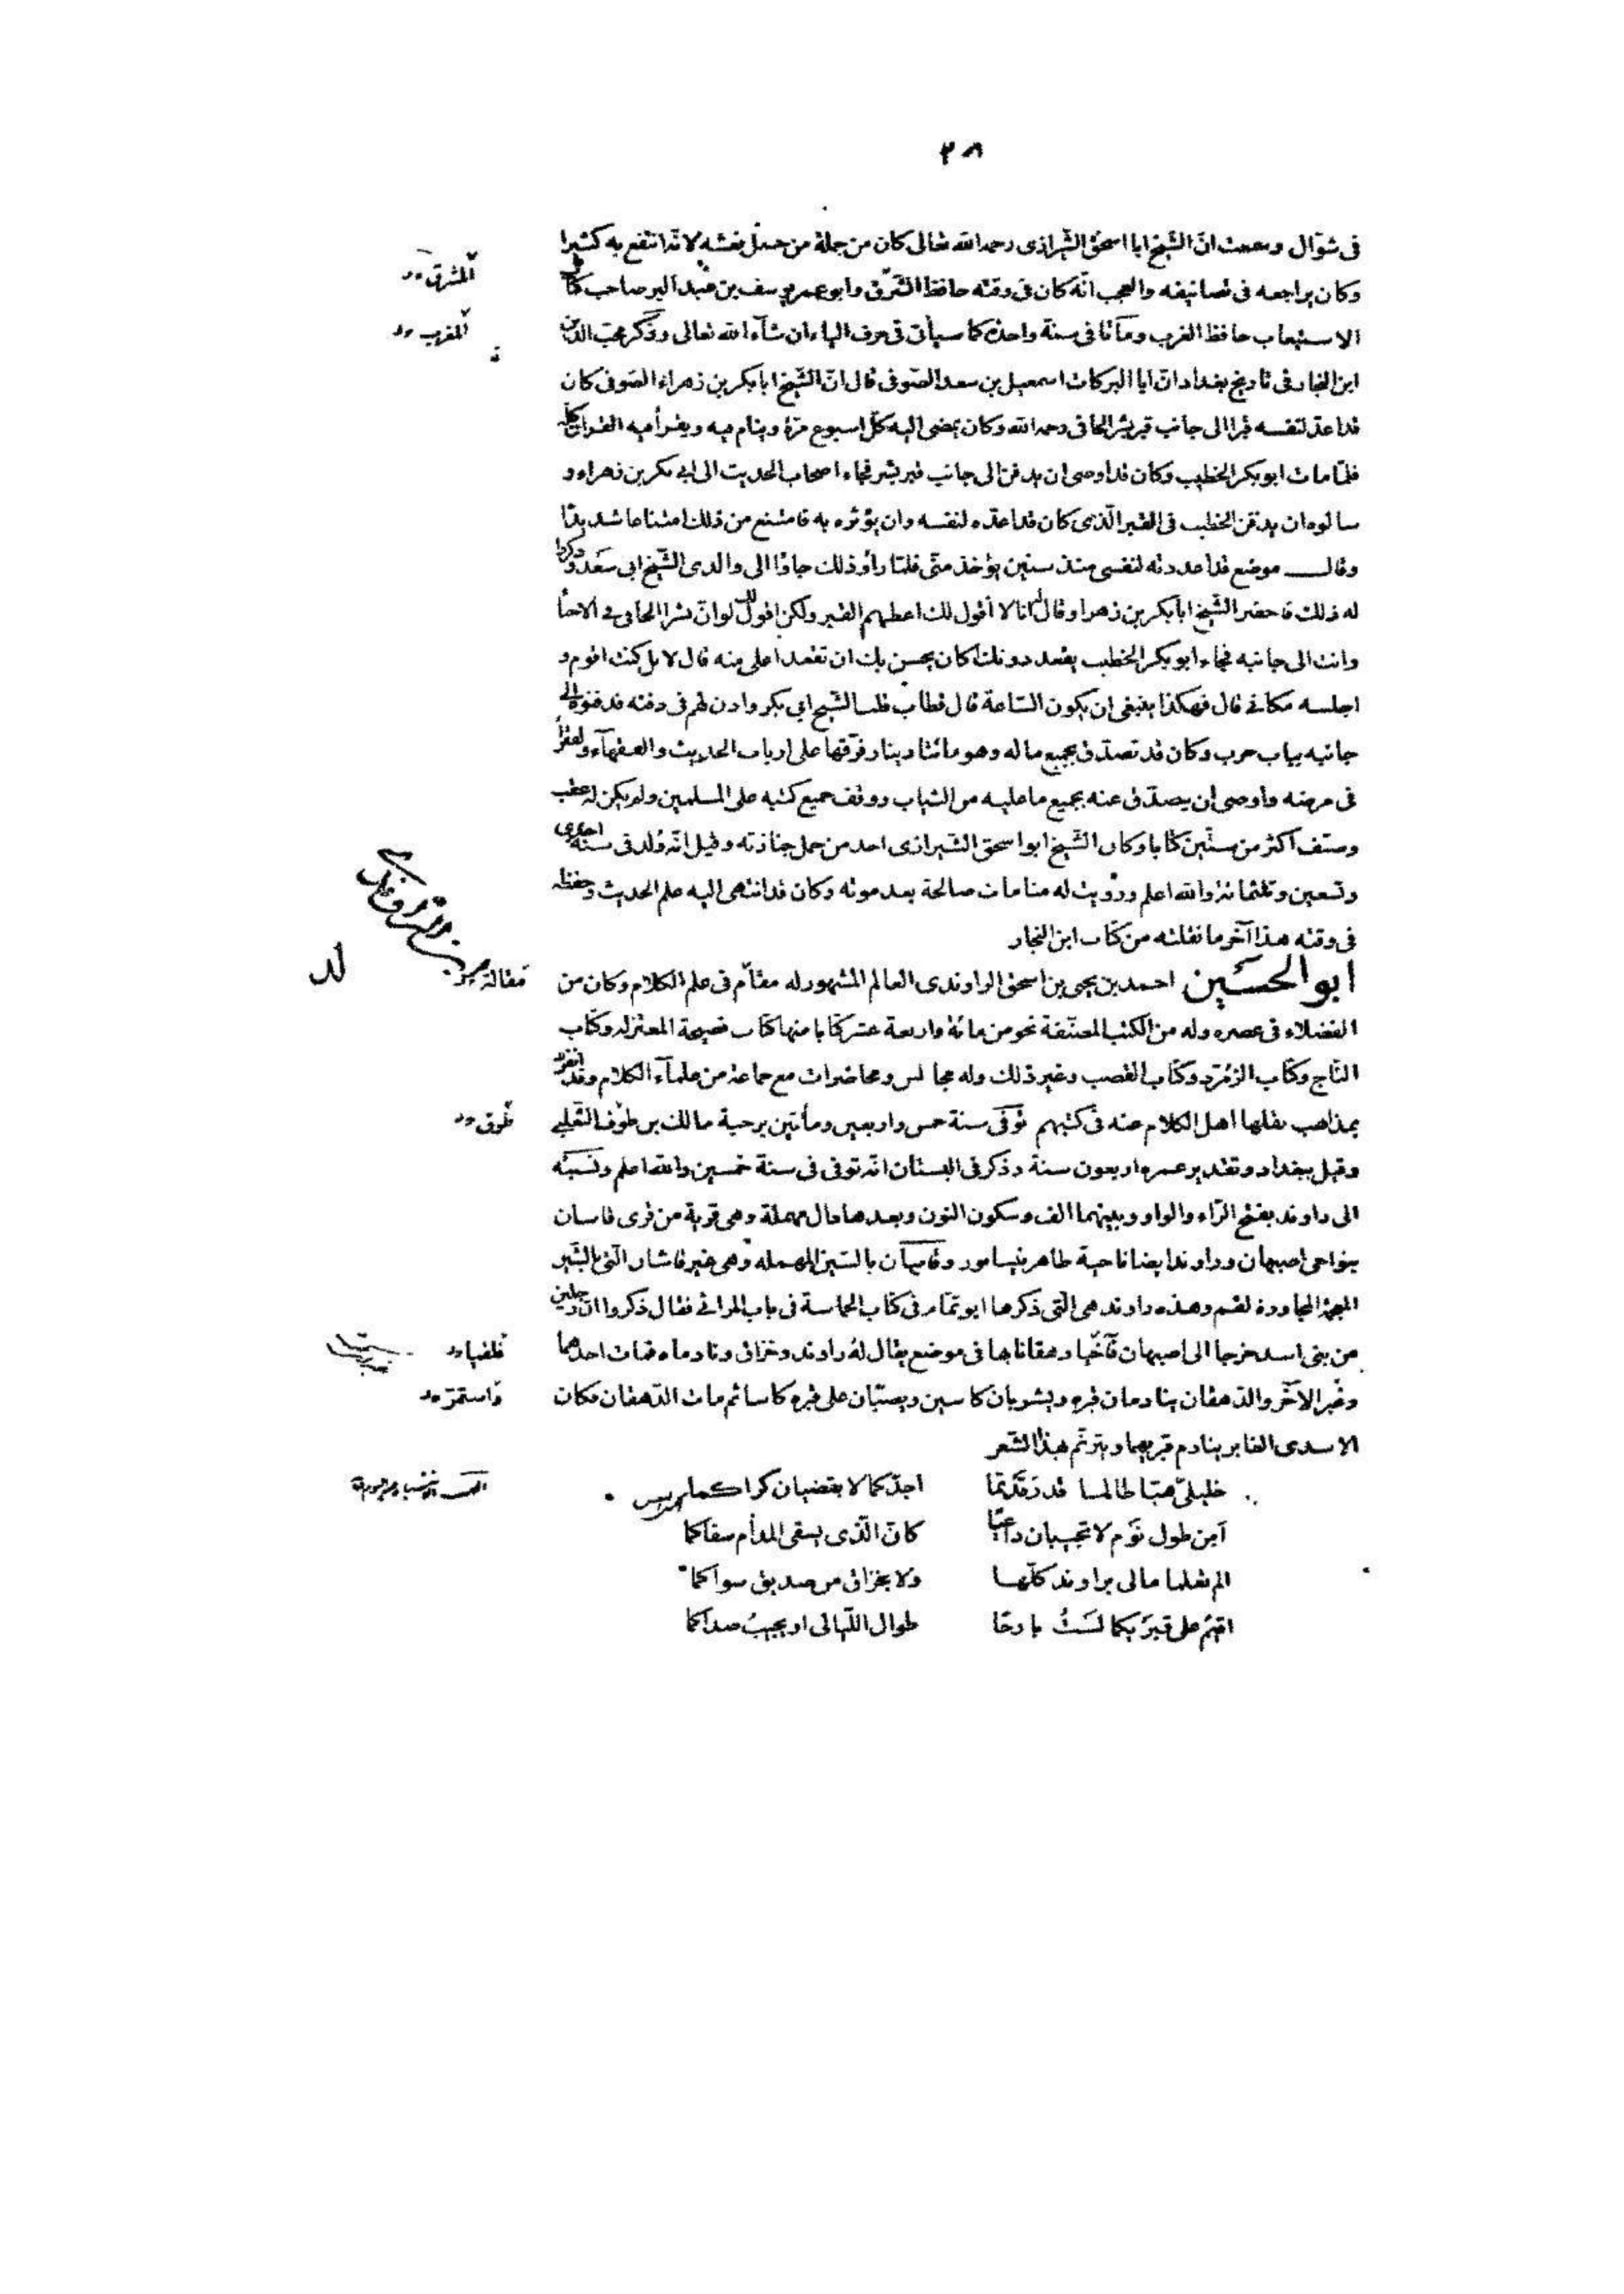 ٣٨
فى شوّال وسمعت انّ الشّيخ ابا اسحق الشّيرازى رحمه الله تعالى كان من جملة من حمل نعشه لانّه انتفع به كثيرا
وكان يراجعه فى تصانيفه والعجب انّه كان فى وقته حافظ الشّرق وابو عمر يوسف بن عبد البر صاحب كتاب
المشرق
الاستيعاب حافظ الغرب وماتا فى سنة واحدة كما سيأتى فى حرف الياء ان شآء الله تعالى وذكر محبّ الدّين
المغرب
ابن النجار فى تاريخ بغداد انّ ابا البركات اسمعيل بن سعد الصّوفى قال انّ الشّيخ ابا بكر بن زهراء الصّوفى كان
قد اعدّ لنفسه قبرا الى جانب قبر بشر الحافى رحمه الله وكان يمضى اليه كلّ اسبوع مرّة وينام فيه ويقرأ فيه القرآن كله
فلمّا مات ابو بكر الخطيب وكان قد اوصى ان يدفن الى جانب قبر بشر فجاء اصحاب الحديث الى ابى بكر بن زهراء و
سالوه ان يدفن الخطيب فى القبر الّذى كان قد اعدّه لنفسه وان يؤثره به فامتنع من ذلك امتناعا شديدًا
وقال موضع قد اعددته لنفسى منذ سنين يؤخذ منّى فلمّا رأوا ذلك جاؤا الى والدى الشّيخ ابى سعد وذكروا
له ذلك فاحضر الشّيخ ابا بكر بن زهراء وقال له انا لا أقول لك اعطهم القبر ولكن اقول لك لو انّ بشرا الحافى فى الاحيا
وانت الى جانبه فجاء ابو بكر الخطيب يقعد دونك اكان يحسن بك ان تقعد اعلى منه قال لا بل كنت اقوم و
اجلسه مكانى قال فهكذا ينبغى ان يكون السّاعة قال فطاب قلب الشّيخ ابى بكر واذن لهم فى دفنه فدفنوه الى
جانبه بباب حرب وكان قد تصدّق بجميع ماله وهو مائتا دينار فرّقها على ارباب الحديث والفقهآء والفقرأ
فى مرضه واوصى ان يصدّق عنه بجميع ما عليه من الثياب ووقف جميع كتبه على المسلمين ولم يكن له عقب
وصنّف اكثر من ستّين كتابا وكان الشّيخ ابو اسحق الشيرازى احد من حمل جنازته وقيل انّه وُلد فى سنة احدى
وتسعين وثلثمائة والله اعلم ورؤيت له منامات صالحة بعد موته وكان قد انتهى اليه علم الحديث وحفظه
فى وقته هذا آخر ما نقلته من كتاب ابن النجار
ابو الحسين احمد بن يحيى بن اسحق الراوندى العالم المشهور له مقام فى علم الكلام وكان من
مقالة
الفضلاء فى عصره وله من الكتب المصنّفة نحو من مائة واربعة عشر كتابا منها كتاب فضيحة المعتزله وكتاب
التّاج وكتاب الزمرّد وكتاب القصب وغير ذلك وله مجالس ومحاضرات مع جماعة من علمآء الكلام وقد انفرد
بمذاهب نقلها اهل الكلام عنه فى كتبهم توفّى سنة خمس واربعين ومأتين برحبة مالك بن طوف التّغلبى
طوق
وقيل ببغداد وتقدير عمره اربعون سنة وذكر فى البستان انّه توفى فى سنة خمسين والله اعلم ونسبته
الى راوند بفتح الرّاء والواو وبينهما الف وسكون النون وبعدها دال مهملة وهى قرية من قرى قاسان
بنواحى اصبهان وراوند ايضا ناحية ظاهر نيسابور وقاسان بالسّين المهمله وهى غير قاشان الّتى بالشّين
المعجمة المجاورة لقم وهذه راوند هى التى ذكرها ابو تمّام فى كتاب الحماسة فى باب المراثى فقال ذكروا انّ رجلين
من بنى اسد خرجا الى اصبهان فآخيا دهقانا بها فى موضع يقال لهُ راوند وخزاق ونادماه فمات احدهما
وغبر الآخر والدّهقان ينادمان قبره ويشربان كاسين ويصبّان على قبره كاسا ثم مات الدّهقان فكان
فاستمرّ
الاسدى الغابر ينادم قبريهما ويترنّم بهذا الشّعر
خليلىّ هبّا طالما قد رقدتما اجدّكما لا تقضيان كراكما
أمن طول نوم لا تجيبان داعيًا كانّ الّذى يسقى المدام سقاكما
الم تعلما مالى براوند كلّها ولا بخزاق من صديق سواكما
اقيم على قبريكما لستُ بارحًا طوال اللّيالى او يجيبُ صداكما